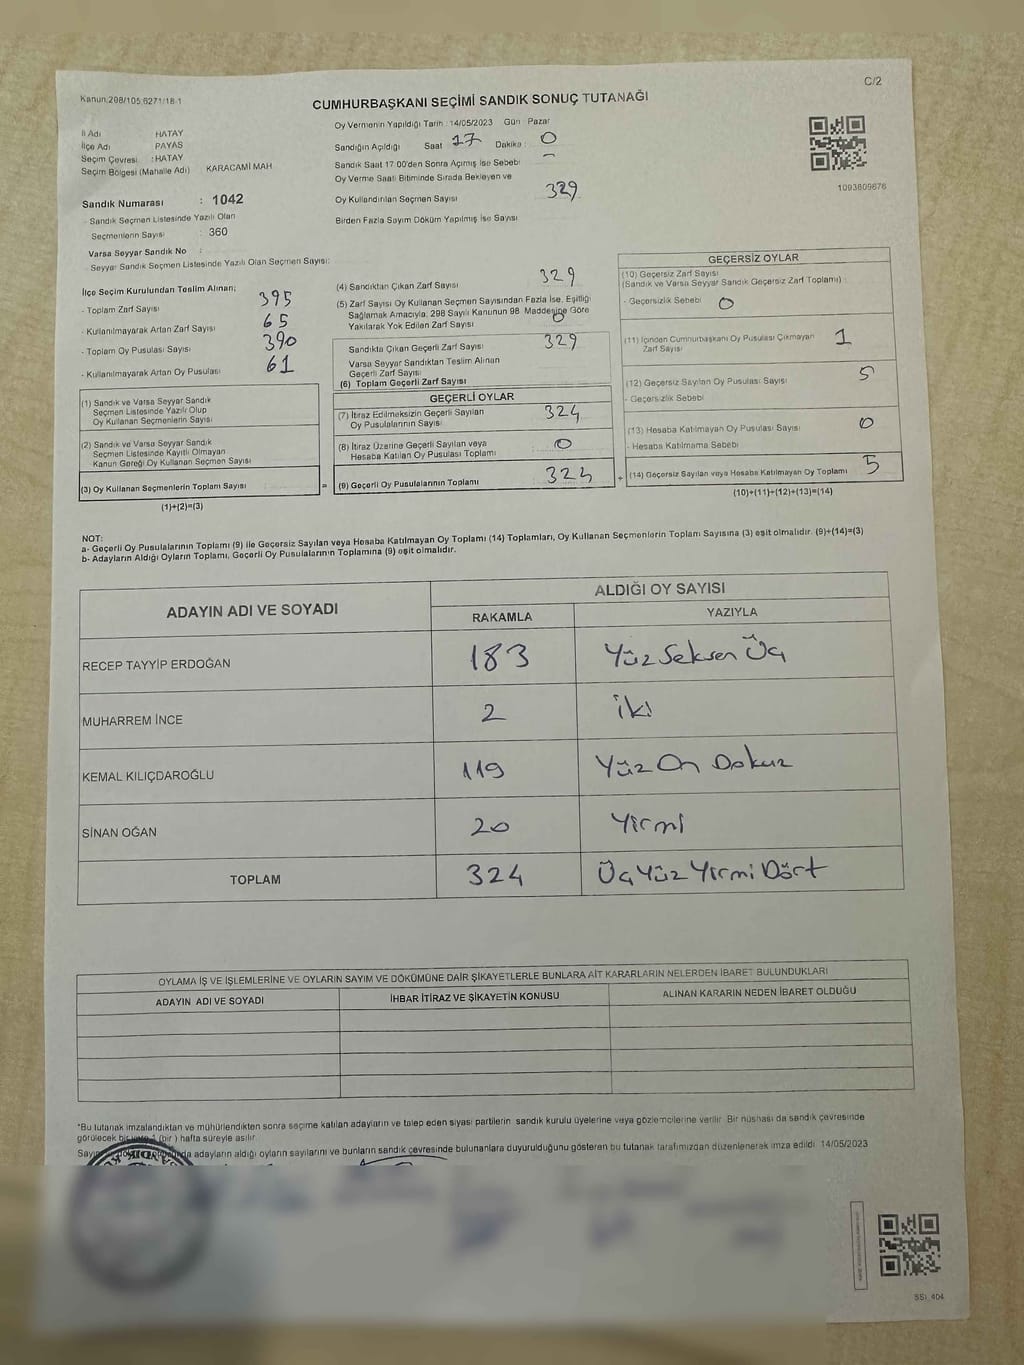 C/2
Kanun:298/105,6271/18-1
CUMHURBAŞKANI SEÇİMİ SANDIK SONUÇ TUTANAĞI
İl Adı HATAY
İlçe Adı PAYAS
Seçim Çevresi :HATAY
Seçim Bölgesi (Mahalle Adı) KARACAMİ MAH
Sandık Numarası : 1042
- Sandık Seçmen Listesinde Yazılı Olan
Seçmenlerin Sayısı : 360
Varsa Seyyar Sandık No :
- Seyyar Sandık Seçmen Listesinde Yazılı Olan Seçmen Sayısı:
Oy Vermenin Yapıldığı Tarih : 14/05/2023 Gün : Pazar
Sandığın Açıldığı Saat : 17 Dakika : 0
Sandık Saat 17:00'den Sonra Açılmış İse Sebebi -
Oy Verme Saati Bitiminde Sırada Bekleyen ve
Oy Kullandırılan Seçmen Sayısı 329
Birden Fazla Sayım Döküm Yapılmış İse Sayısı
1093809676
İlçe Seçim Kurulundan Teslim Alınan;
- Toplam Zarf Sayısı 395
- Kullanılmayarak Artan Zarf Sayısı 65
- Toplam Oy Pusulası Sayısı 390
- Kullanılmayarak Artan Oy Pusulası 61
(1) Sandık ve Varsa Seyyar Sandık
Seçmen Listesinde Yazılı Olup
Oy Kullanan Seçmenlerin Sayısı
(2) Sandık ve Varsa Seyyar Sandık
Seçmen Listesinde Kayıtlı Olmayan
Kanun Gereği Oy Kullanan Seçmen Sayısı
(3) Oy Kullanan Seçmenlerin Toplam Sayısı
(1)+(2)=(3)
(4) Sandıktan Çıkan Zarf Sayısı 329
(5) Zarf Sayısı Oy Kullanan Seçmen Sayısından Fazla İse, Eşitliği
Sağlamak Amacıyla; 298 Sayılı Kanunun 98. Maddesine Göre
Yakılarak Yok Edilen Zarf Sayısı 0
Sandıkta Çıkan Geçerli Zarf Sayısı 329
Varsa Seyyar Sandıktan Teslim Alınan
Geçerli Zarf Sayısı
(6) Toplam Geçerli Zarf Sayısı
GEÇERLİ OYLAR
(7) İtiraz Edilmeksizin Geçerli Sayılan
Oy Pusulalarının Sayısı 324
(8) İtiraz Üzerine Geçerli Sayılan veya
Hesaba Katılan Oy Pusulası Toplamı 0
= (9) Geçerli Oy Pusulalarının Toplamı 324
GEÇERSİZ OYLAR
(10) Geçersiz Zarf Sayısı
(Sandık ve Varsa Seyyar Sandık Geçersiz Zarf Toplamı)
- Geçersizlik Sebebi 0
(11) İçinden Cumhurbaşkanı Oy Pusulası Çıkmayan
Zarf Sayısı 1
(12) Geçersiz Sayılan Oy Pusulası Sayısı 5
- Geçersizlik Sebebi
(13) Hesaba Katılmayan Oy Pusulası Sayısı 0
- Hesaba Katılmama Sebebi
+ (14) Geçersiz Sayılan veya Hesaba Katılmayan Oy Toplamı 5
(10)+(11)+(12)+(13)=(14)
NOT:
a- Geçerli Oy Pusulalarının Toplamı (9) ile Geçersiz Sayılan veya Hesaba Katılmayan Oy Toplamı (14) Toplamları, Oy Kullanan Seçmenlerin Toplam Sayısına (3) eşit olmalıdır. (9)+(14)=(3)
b- Adayların Aldığı Oyların Toplamı, Geçerli Oy Pusulalarının Toplamına (9) eşit olmalıdır.
ADAYIN ADI VE SOYADI ALDIĞI OY SAYISI
RAKAMLA YAZIYLA
RECEP TAYYİP ERDOĞAN 183 Yüz Seksen Üç
MUHARREM İNCE 2 İki
KEMAL KILIÇDAROĞLU 119 Yüz On Dokuz
SİNAN OĞAN 20 Yirmi
TOPLAM 324 Üç Yüz Yirmi Dört
OYLAMA İŞ VE İŞLEMLERİNE VE OYLARIN SAYIM VE DÖKÜMÜNE DAİR ŞİKAYETLERLE BUNLARA AİT KARARLARIN NELERDEN İBARET BULUNDUKLARI
ADAYIN ADI VE SOYADI İHBAR İTİRAZ VE ŞİKAYETİN KONUSU ALINAN KARARIN NEDEN İBARET OLDUĞU
*Bu tutanak imzalandıktan ve mühürlendikten sonra seçime katılan adayların ve talep eden siyasi partilerin sandık kurulu üyelerine veya gözlemcilerine verilir. Bir nüshası da sandık çevresinde
görülecek bir yere 1 (bir) hafta süreyle asılır.
adayların aldığı oyların sayılarını ve bunların sandık çevresinde bulunanlara duyurulduğunu gösteren bu tutanak tarafımızdan düzenlenerek imza edildi. 14/05/2023
SSİ_404